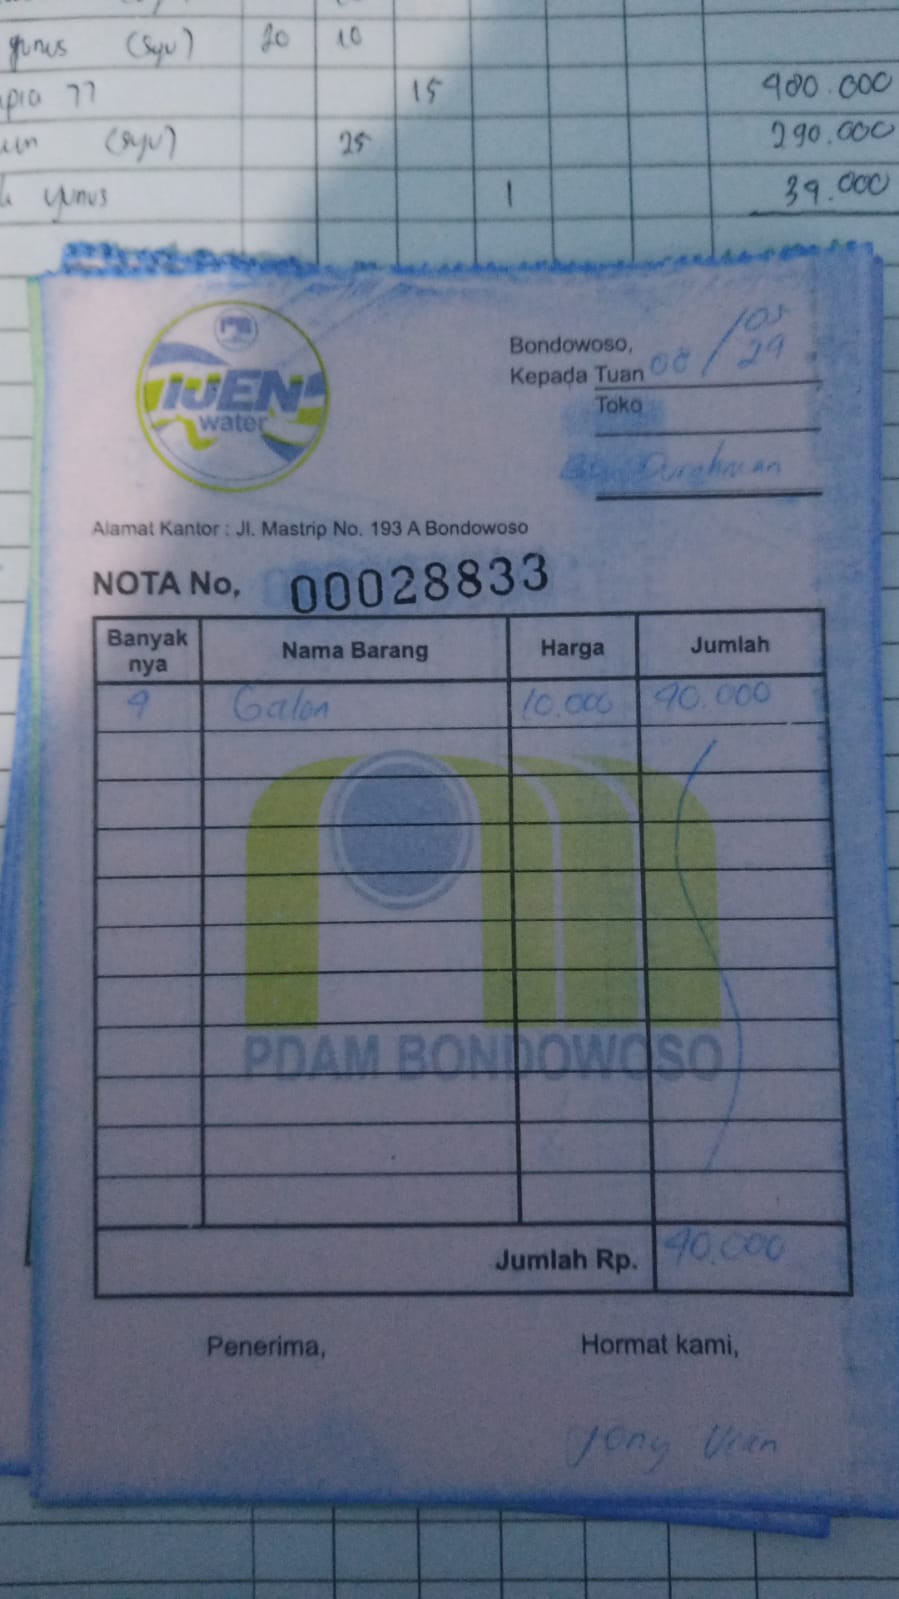 yunus (syu) 20 10
pia 77 15 480.000
(syu) 25 290.000
yunus 1 39.000
IJEN
water
Bondowoso, 08/05
Kepada Tuan 24
Toko
Durahman
Alamat Kantor : Jl. Mastrip No. 193 A Bondowoso
NOTA No. 00028833
Banyak nya Nama Barang Harga Jumlah
4 Galon 10.000 40.000
PDAM BONDOWOSO
Jumlah Rp. 40.000
Penerima, Hormat kami,